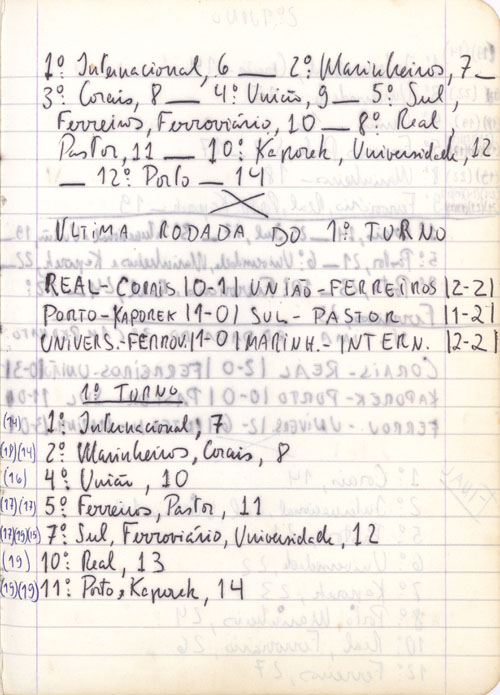 1º Internacional, 6 — 2º Marinheiros, 7 —
3º Corais, 8 — 4º União, 9 — 5º Sul,
Ferreiros, Ferroviário, 10 — 8º Real
Pastor, 11 — 10º Kaporek, Universidade, 12
— 12º Porto — 14
ÚLTIMA RODADA DO 1º TURNO
REAL-CORAIS |0-1| UNIÃO-FERREIROS |2-2|
PORTO-KAPOREK |1-0| SUL-PASTOR |1-2|
UNIVERS.-FERROV. |1-0| MARINH.-INTERN. |2-2|
1º TURNO
(14) 1º Internacional, 7
(18)(14) 2º Marinheiros, Corais, 8
(16) 4º União, 10
(17)(17) 5º Ferreiros, Pastor, 11
7º Sul, Ferroviário, Universidade, 12
(19) 10º Real, 13
(19) 11º Porto, Kaporek, 14